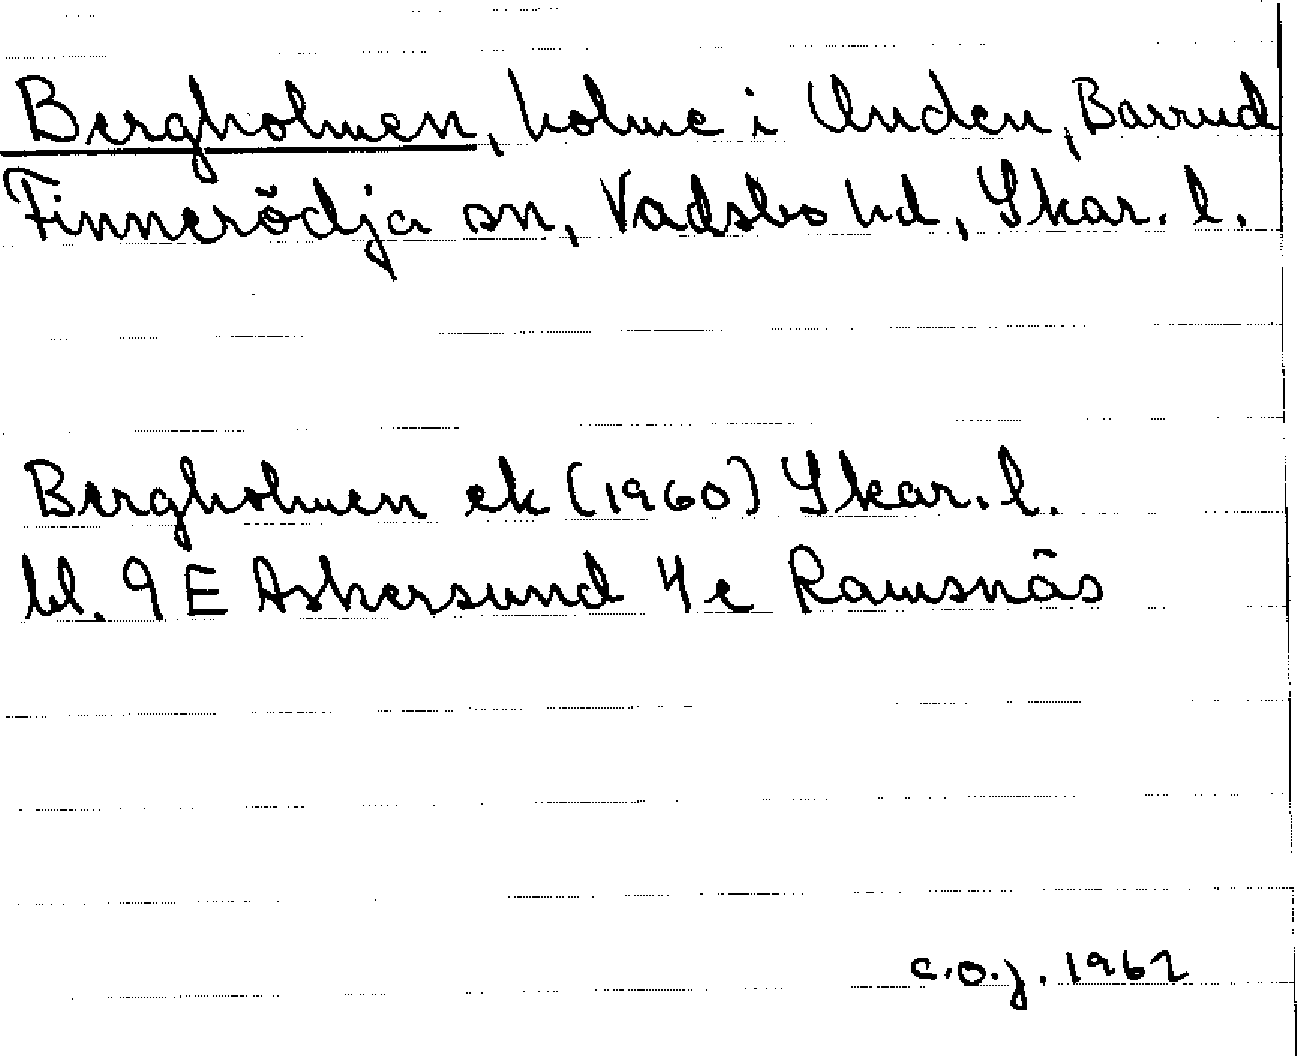 Bergholmen, holme i Unden, Barrud
Finnerödja sn, Vadsbo hd, Skar. l.
Bergholmen ek (1960) Skar. l.
bl. 9 E Askersund 4 e Ramsnäs
C.O.J. 1962